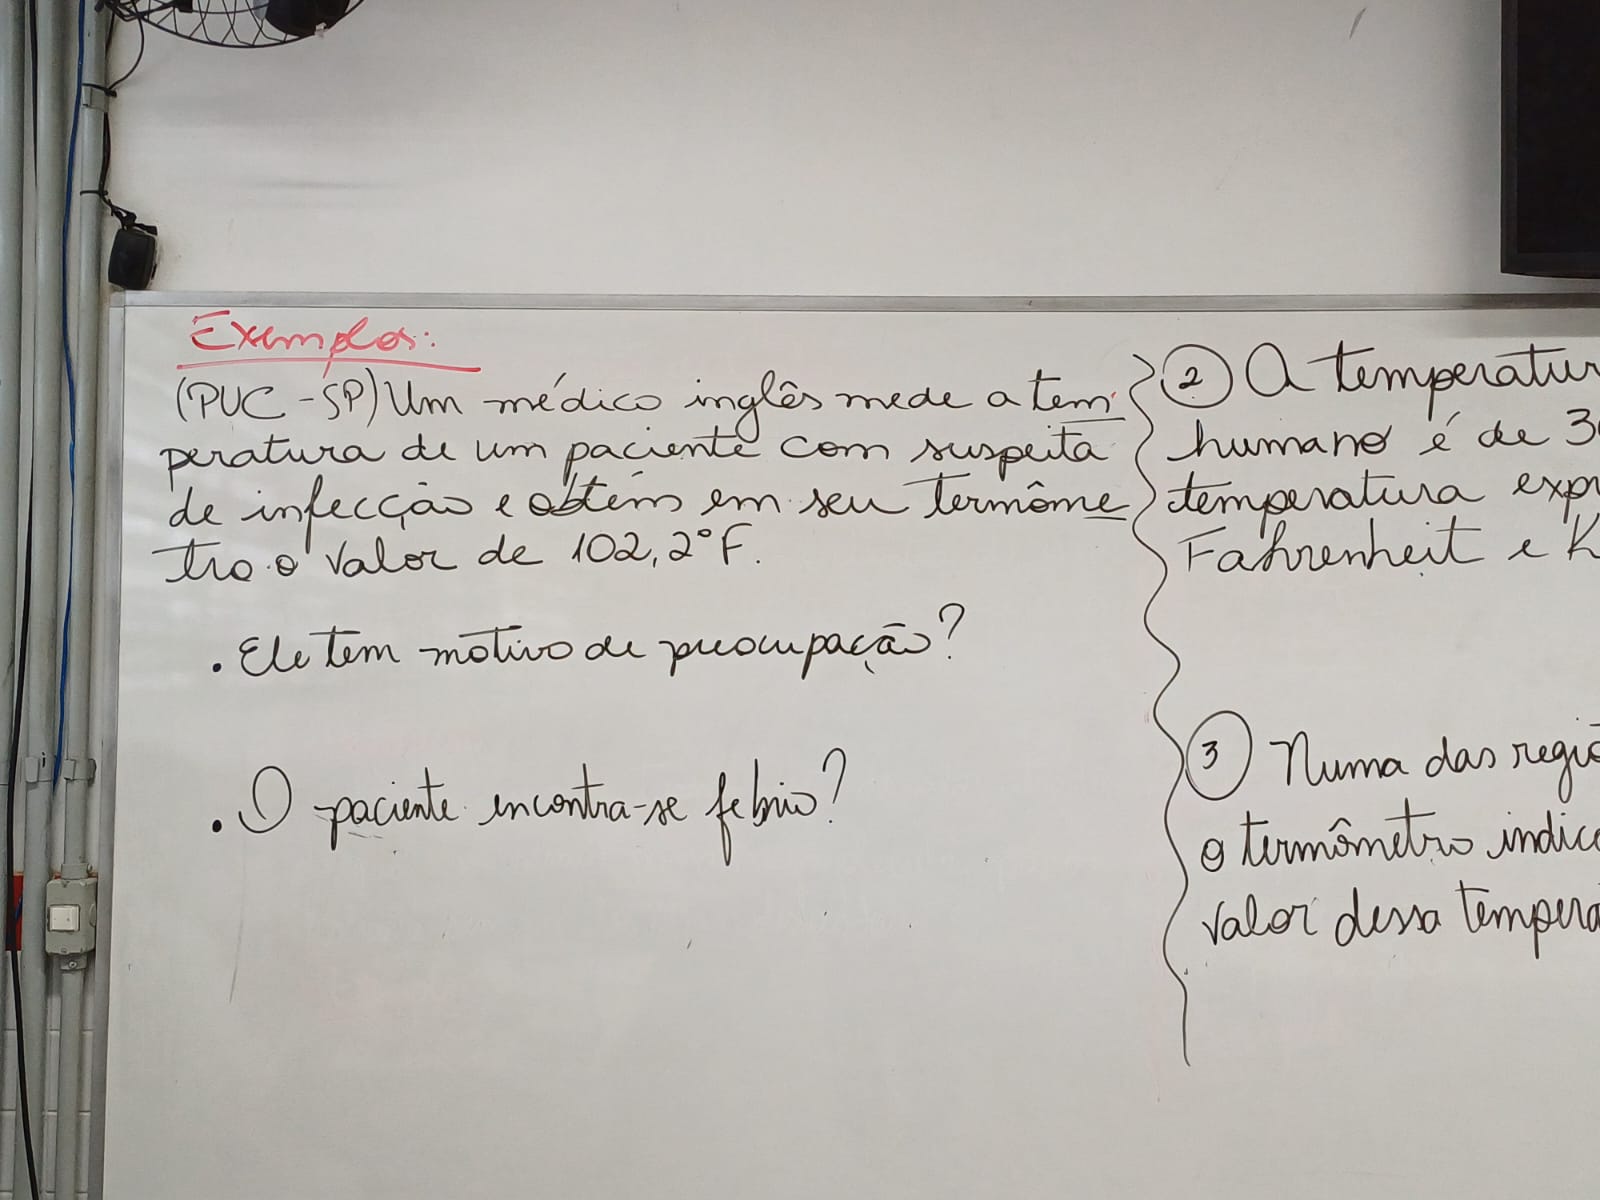 Exemplos:
(PUC-SP) Um médico inglês mede a tem
peratura de um paciente com suspeita
de infecção e obtém em seu termôme
tro o valor de 102,2°F.
. Ele tem motivo de preocupação?
. O paciente encontra-se febrio?
2 A temperatur
humano é de 3
temperatura expr
Fahrenheit e K
3 Numa das regiõ
o termômetro indic
valor dessa tempera